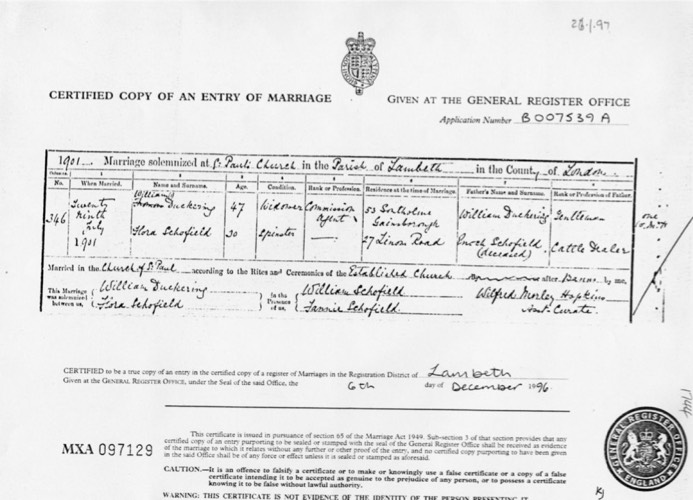 28.1.97
CERTIFIED COPY OF AN ENTRY OF MARRIAGE
GIVEN AT THE GENERAL REGISTER OFFICE
Application Number B007539A
1901 Marriage solemnized at St Paul's Church in the Parish of Lambeth in the County of London
No. When Married. Name and Surname. Age. Condition. Rank or Profession. Residence at the time of Marriage. Father's Name and Surname. Rank or Profession of Father.
346 Twenty ninth July 1901 William Thomas Duckering 47 Widower Commission Agent 53 Gainsborough William Duckering Gentleman
Flora Schofield 30 Spinster — 27 Road Enoch Schofield (deceased) Cattle Dealer
Married in the Church of St Paul according to the Rites and Ceremonies of the Established Church after Banns by me,
This Marriage was solemnized between us, William Duckering Flora Schofield in the Presence of us, William Schofield Fannie Schofield Wilfred Morley Hopkins Asst. Curate
CERTIFIED to be a true copy of an entry in the certified copy of a register of Marriages in the Registration District of Lambeth
Given at the GENERAL REGISTER OFFICE, under the Seal of the said Office, the 6th day of December 1996
MXA 097129
This certificate is issued in pursuance of section 65 of the Marriage Act 1949. Sub-section 3 of that section provides that any
certified copy of an entry purporting to be sealed or stamped with the seal of the General Register Office shall be received as evidence
of the marriage to which it relates without any further or other proof of the entry, and no certified copy purporting to have been given
in the said Office shall be of any force or effect unless it is sealed or stamped as aforesaid.
CAUTION.—It is an offence to falsify a certificate or to make or knowingly use a false certificate or a copy of a false
certificate intending it to be accepted as genuine to the prejudice of any person, or to possess a certificate
knowing it to be false without lawful authority.
WARNING: THIS CERTIFICATE IS NOT EVIDENCE OF THE IDENTITY OF THE PERSON PRESENTING IT.
GENERAL REGISTER OFFICE
ENGLAND